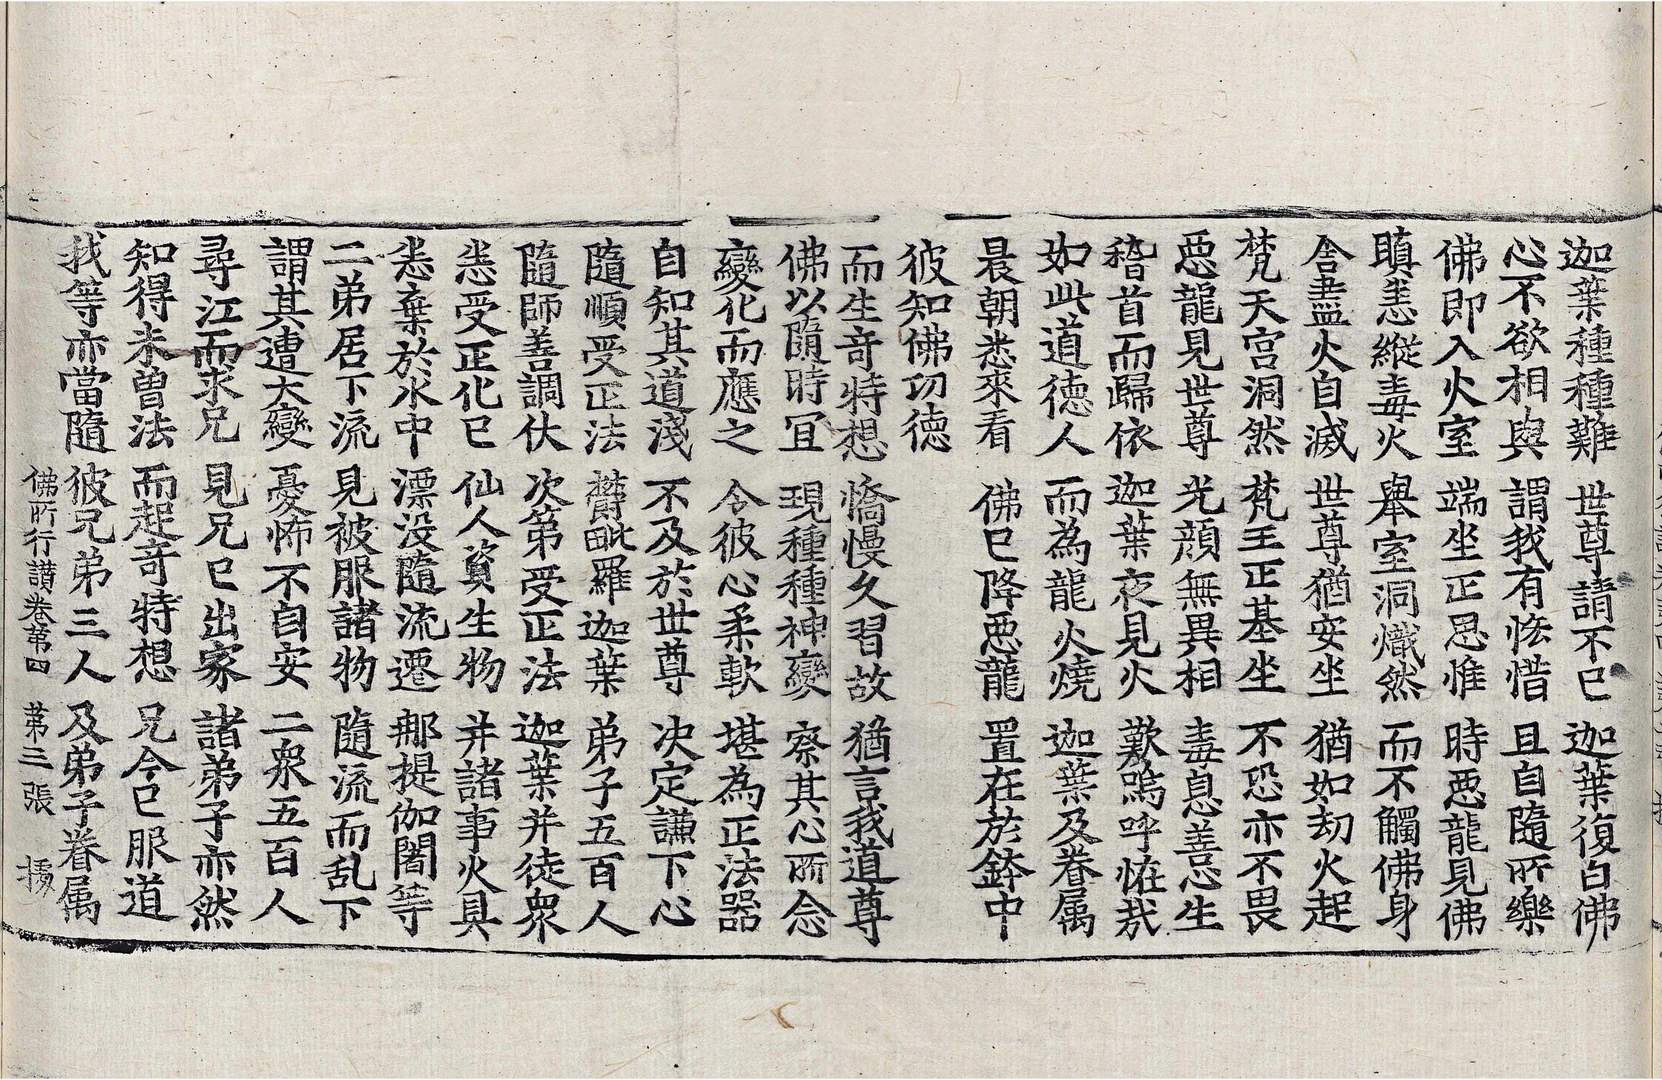 迦葉種種難　世尊請不已　迦葉復白佛
心不欲相與　謂我有恡惜　且自隨所樂
佛即入火室　端坐正思惟　時惡龍見佛
瞋恚縱毒火　舉室洞熾然　而不觸佛身
舍盡火自滅　世尊猶安坐　猶如劫火起
梵天宮洞然　梵王正基坐　不恐亦不畏
惡龍見世尊　光顏無異相　毒息善心生
稽首而歸依　迦葉夜見火　歎嗚呼恠哉
如此道德人　而為龍火燒　迦葉及眷属
晨朝悉來看　佛已降惡龍　置在於鉢中
彼知佛功德
而生奇特想　憍慢久習故　猶言我道尊
佛以隨時宜　現種種神變　察其心所念
變化而應之　令彼心柔軟　堪為正法器
自知其道淺　不及於世尊　决定謙下心
隨順受正法　欝毗羅迦葉　弟子五百人
隨師善調伏　次第受正法　迦葉并徒衆
悉受正化已　仙人資生物　并諸事火具
悉棄於水中　漂没隨流遷　那提伽闍等
二弟居下流　見被服諸物　隨流而乱下
謂其遭大變　憂怖不自安　二衆五百人
尋江而求兄　見兄已出家　諸弟子亦然
知得未曾法　而起奇特想　兄今已服道
我等亦當隨　彼兄弟三人　及弟子眷属
佛所行讃卷第四　第三張